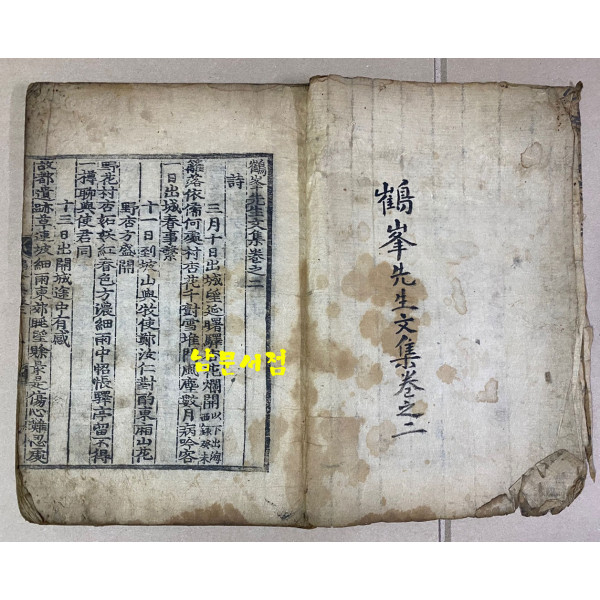 鶴峯先生文集卷之二
鶴峯先生文集卷之二
詩
三月十日出城望延曙驛杏花爛開以下出海西錄
籬落依俙何處村杏花千樹雪堆門風塵數月病吟客
一日出城春事繁
十一日到坡山與牧使鄭汝仁對酌東廂山花
野杏方盛開
野花村杏紅春色方濃細雨中怊悵驛亭留不得
一樽聊與使君同
十三日出開城途中有感
故都遺跡草連坡細雨東郊眺望賖最是傷心難忍處
남문서점